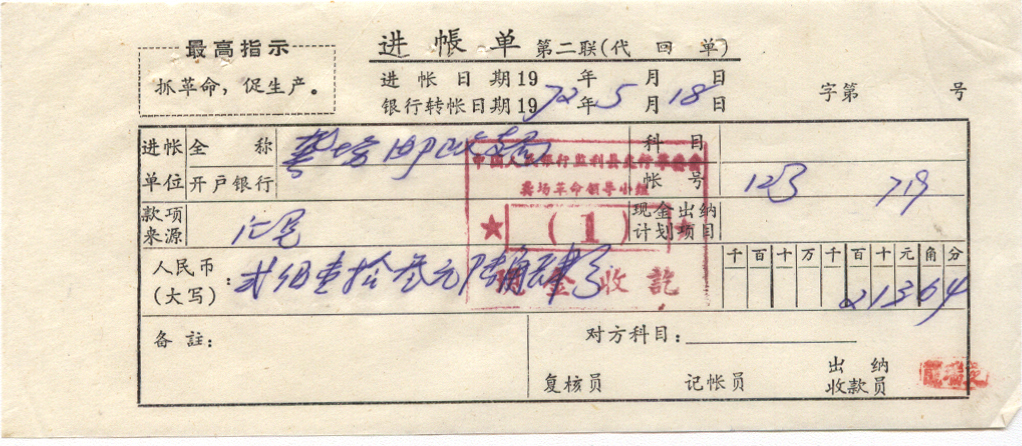 最高指示
抓革命，促生产。
进帐单 第二联(代回单)
进帐日期19 年 月 日
银行转帐日期1972年5月18日
字第 号
进帐单位 全称 龚场邮政支局
开户银行
科目
帐号 123 719
款项来源 汇兑
现金出纳计划项目
中国人民银行监利县支行革委会
龚场革命领导小组
★ (1) ★
现金收讫
人民币(大写)：贰佰壹拾叁元陆角肆分
千百十万千百十元角分
21364
备註：
对方科目：
复核员 记帐员 出纳收款员